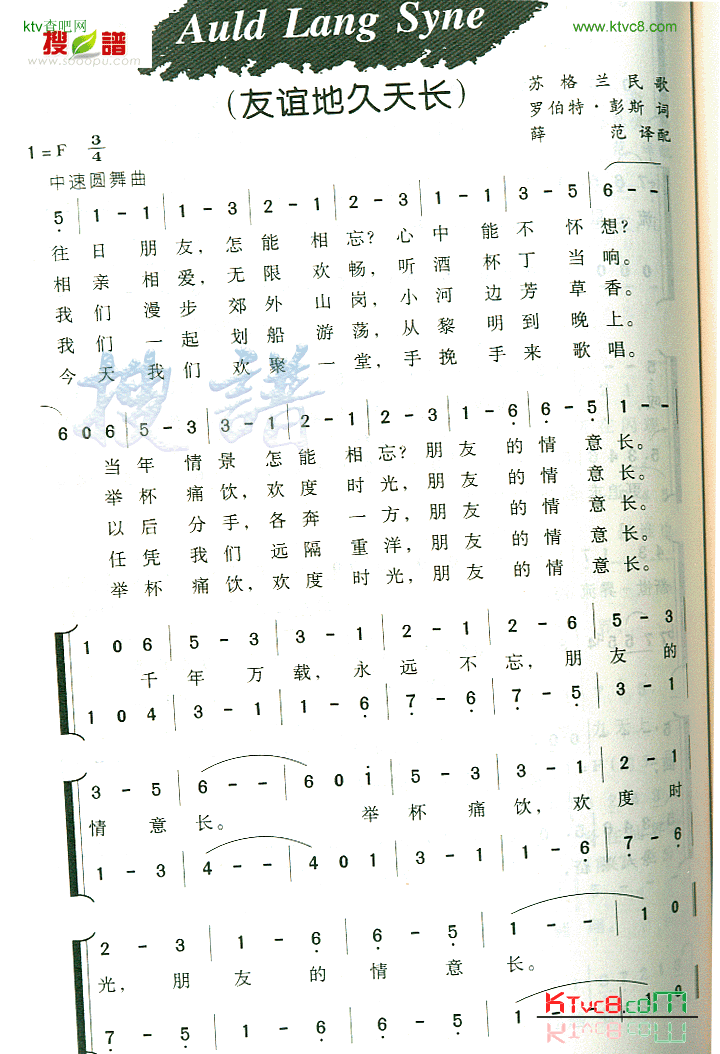 ktv查吧网
搜谱
www.sooopu.com
Auld Lang Syne
www.ktvc8.com
(友谊地久天长)
苏格兰民歌
罗伯特·彭斯 词
薛范译配
1=F 3/4
中速圆舞曲
5 | 1 - 1 | 1 - 3 | 2 - 1 | 2 - 3 | 1 - 1 | 3 - 5 | 6 - - |
往日朋友，怎能相忘？心中能不怀想？
相亲相爱，无限欢畅，听酒杯丁当响。
我们漫步郊外山岗，小河边芳草香。
我们一起划船游荡，从黎明到晚上。
今天我们欢聚一堂，手挽手来歌唱。
搜譜
6 0 6 | 5 - 3 | 3 - 1 | 2 - 1 | 2 - 3 | 1 - 6 | 6 - 5 | 1 - - |
当年情景怎能相忘？朋友的情意长。
举杯痛饮，欢度时光，朋友的情意长。
以后分手，各奔一方，朋友的情意长。
任凭我们远隔重洋，朋友的情意长。
举杯痛饮，欢度时光，朋友的情意长。
1 0 6 | 5 - 3 | 3 - 1 | 2 - 1 | 2 - 6 | 5 - 3
千年万载，永远不忘，朋友的
1 0 4 | 3 - 1 | 1 - 6 | 7 - 6 | 7 - 5 | 3 - 1
3 - 5 | 6 - - | 6 0 1 | 5 - 3 | 3 - 1 | 2 - 1
情意长。举杯痛饮，欢度时
1 - 3 | 4 - - | 4 0 1 | 3 - 1 | 1 - 6 | 7 - 6
2 - 3 | 1 - 6 | 6 - 5 | 1 - - | 1 0
光，朋友的情意长。
7 - 5 | 1 - 6 | 6 - 5 | 1
KTvc8.com